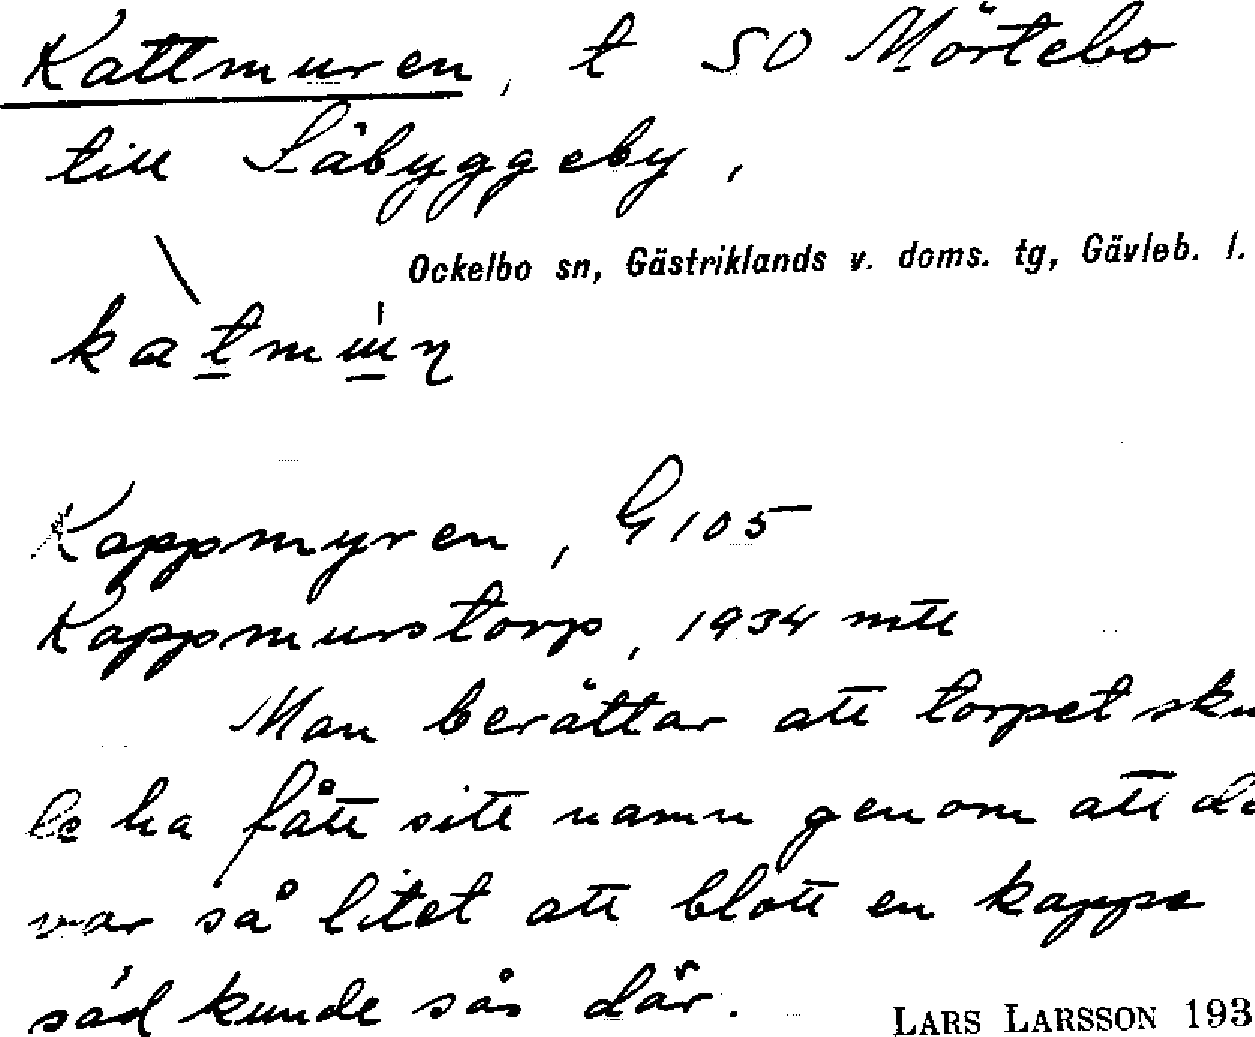 Kattmuren, t SO Mörtebo
till Såbyggeby,
Ockelbo sn, Gästriklands v. doms. tg, Gävleb. l.
Kappmyren, G105
Kappmurstorp, 1934 mtl
Man berättar att torpet sku
le ha fått sitt namn genom att de
var så litet att blott en kappe
säd kunde sås där.
LARS LARSSON 193